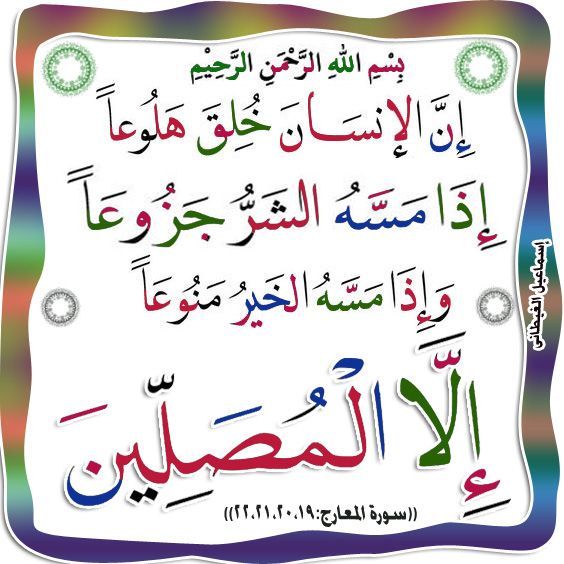 بِسْمِ اللهِ الرَّحْمَنِ الرَّحِيْمِ
إِنَّ الإِنسَانَ خُلِقَ هَلُوعاً
إِذَا مَسَّهُ الشَرُّ جَزُوعَاً
وَإِذَا مَسَّهُ الخَيرُ مَنُوعَاً
إِلَّا الْمُصَلِّينَ
((سورة المعارج:١٩، ٢٠، ٢١، ٢٢))
إسماعيل الغيطانى